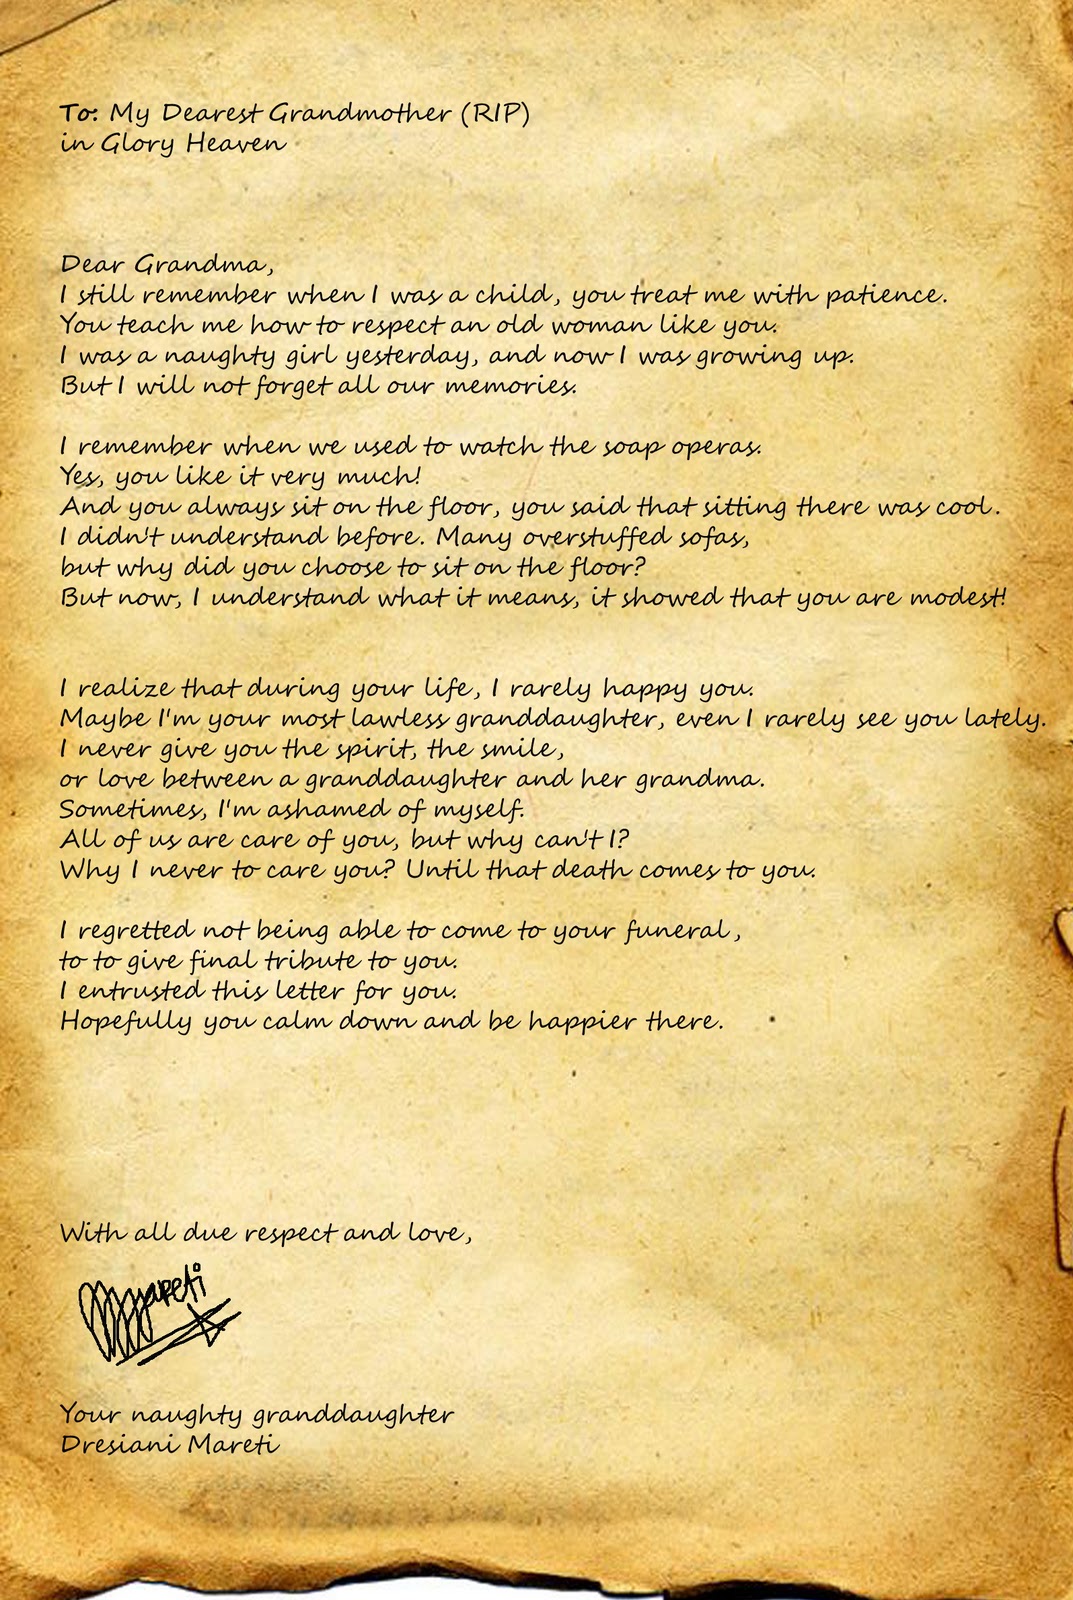 To: My Dearest Grandmother (RIP)
in Glory Heaven
Dear Grandma,
I still remember when I was a child, you treat me with patience.
You teach me how to respect an old woman like you.
I was a naughty girl yesterday, and now I was growing up.
But I will not forget all our memories.
I remember when we used to watch the soap operas.
Yes, you like it very much!
And you always sit on the floor, you said that sitting there was cool.
I didn't understand before. Many overstuffed sofas,
but why did you choose to sit on the floor?
But now, I understand what it means, it showed that you are modest!
I realize that during your life, I rarely happy you.
Maybe I'm your most lawless granddaughter, even I rarely see you lately.
I never give you the spirit, the smile,
or love between a granddaughter and her grandma.
Sometimes, I'm ashamed of myself.
All of us are care of you, but why can't I?
Why I never to care you? Until that death comes to you.
I regretted not being able to come to your funeral,
to to give final tribute to you.
I entrusted this letter for you.
Hopefully you calm down and be happier there.
With all due respect and love,
Mareti
Your naughty granddaughter
Dresiani Mareti